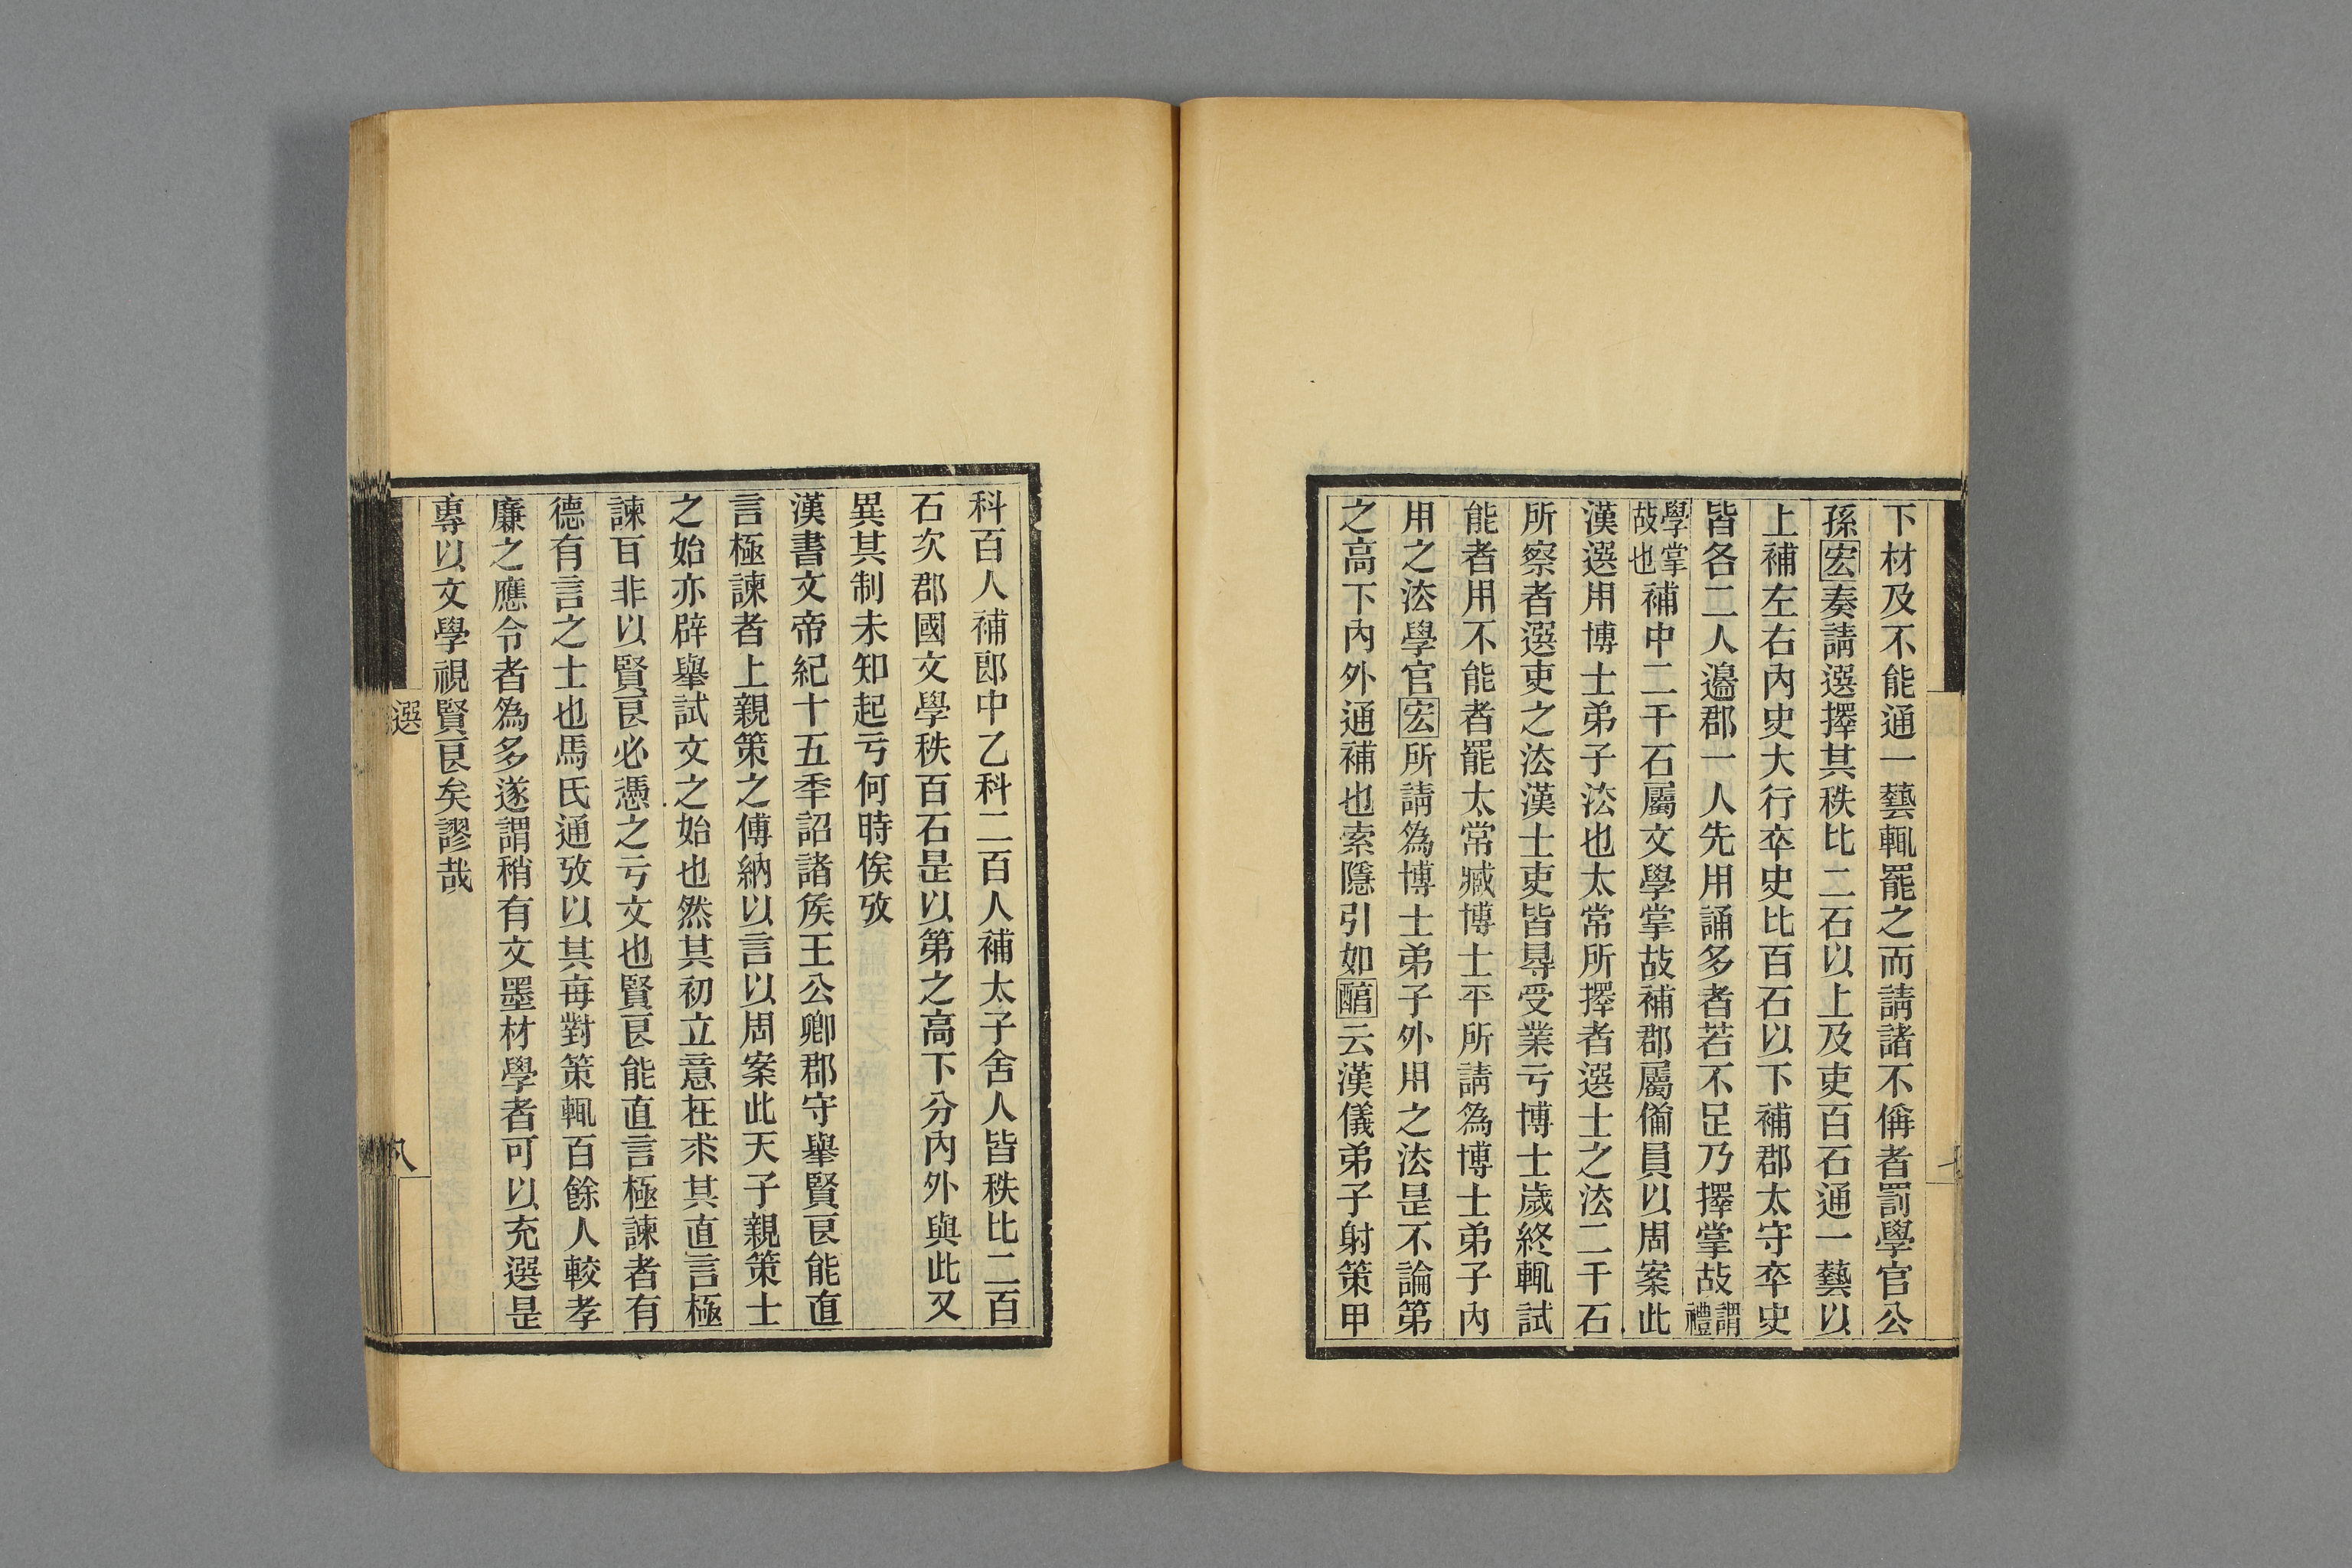 下材及不能通一藝輒罷之而請諸不偁者罰學官公
孫宏奏請選擇其秩比二石以上及吏百石通一藝以
上補左右內史大行卒史比百石以下補郡太守卒史
皆各二人邊郡一人先用誦多者若不足乃擇掌故謂禮
學掌故也補中二千石屬文學掌故補郡屬備員以周案此
漢選用博士弟子法也太常所擇者選士之法二千石
所察者選吏之法漢士吏皆㝵受業亏博士歲終輒試
能者用不能者罷太常臧博士平所請為博士弟子內
用之法學官宏所請為博士弟子外用之法是不論第
之高下內外通補也索隱引如醕云漢儀弟子射策甲
科百人補郎中乙科二百人補太子舍人皆秩比二百
石次郡國文學秩百石是以第之高下分內外與此又
異其制未知起亏何時俟攷
漢書文帝紀十五年詔諸矦王公卿郡守舉賢良能直
言極諫者上親策之傅納以言以周案此天子親策士
之始亦辟舉試文之始也然其初立意在求其直言極
諫而非以賢良必憑之亏文也賢良能直言極諫者有
德有言之士也馬氏通攷以其每對策輒百餘人較孝
廉之應令者為多遂謂稍有文墨材學者可以充選是
專以文學視賢良矣謬哉
選
八